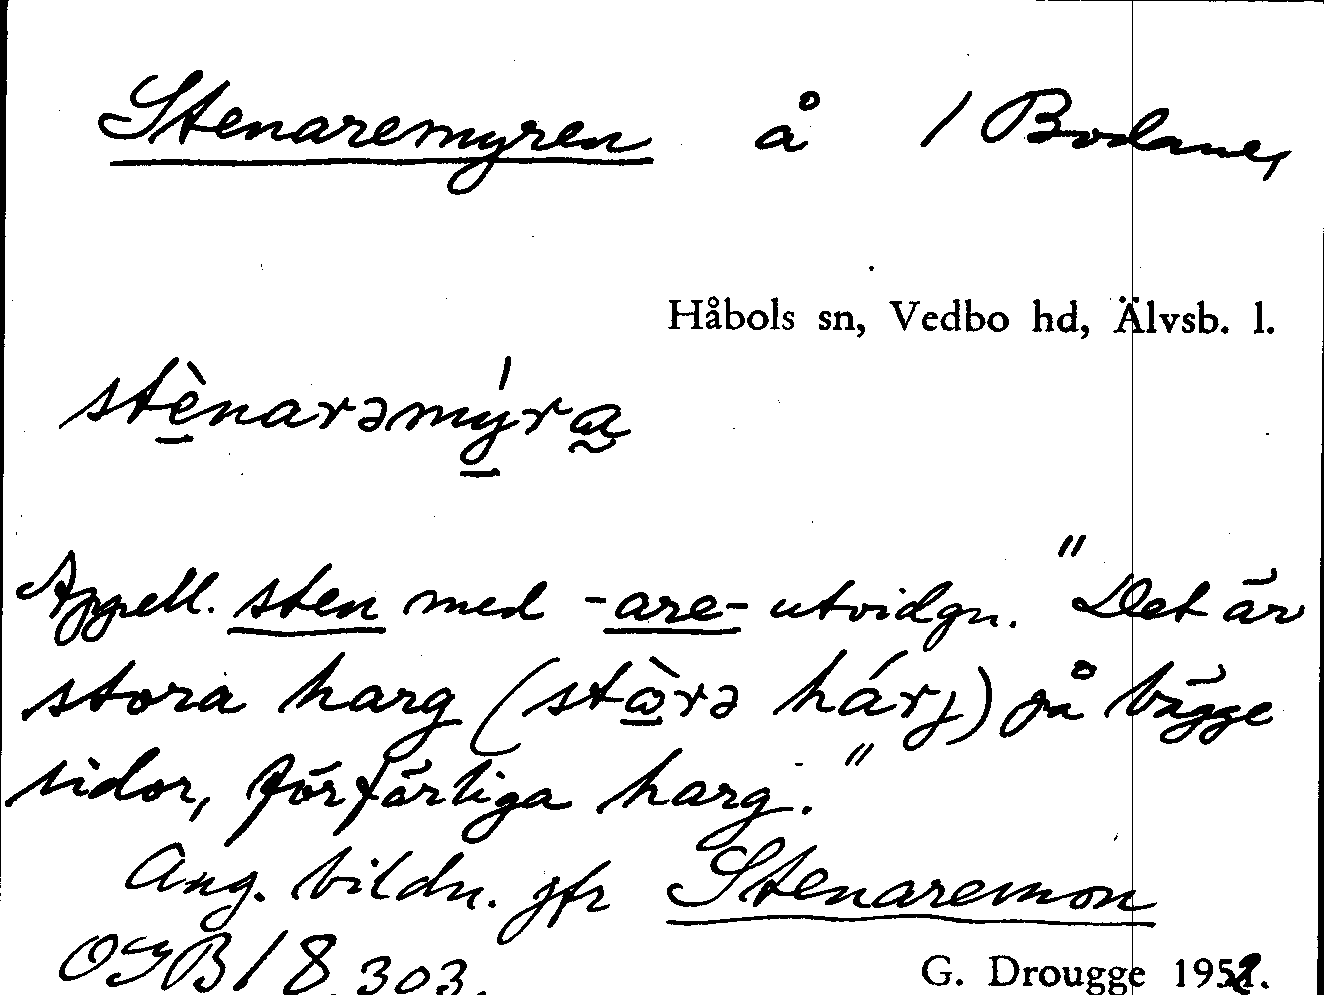 Stenaremyren å / Bodane,
Håbols sn, Vedbo hd, Älvsb. l.
stènarəmýra
Appell. sten med -are- utvidgn. "Det är
stora harg (stòrə hárj) på bägge
sidor, förfärliga harg."
Ang. bildn. jfr Stenaremon
OGB 18 303.
G. Drougge 1952.